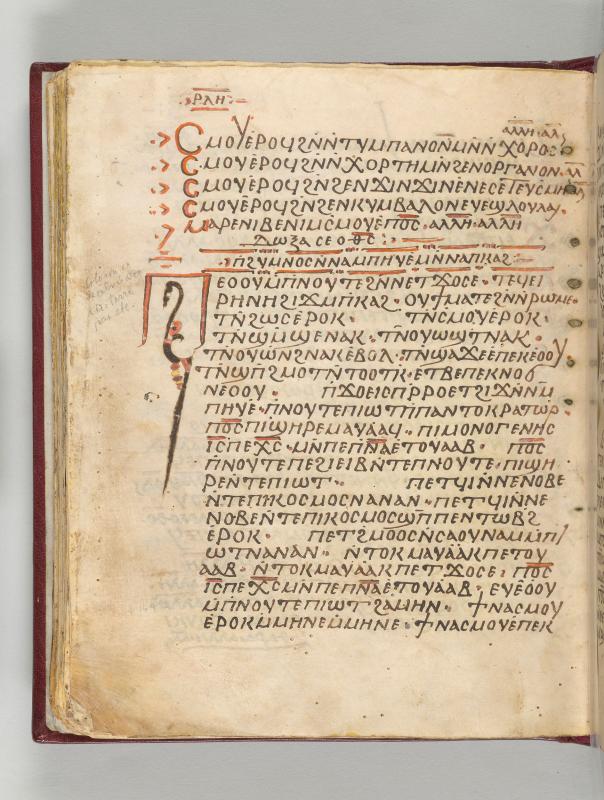 ⲣⲗⲏ
ⲁⲗⲗⲏ· ⲁⲗ
ⲥⲙⲟⲩ ⲉⲣⲟϥ ϩⲛ ⲛⲧⲩⲙⲡⲁⲛⲟⲛ ⲙⲛ ⲛⲭⲟⲣⲟⲥ
ⲥⲙⲟⲩ ⲉⲣⲟϥ ϩⲛ ⲛⲭⲟⲣⲧⲏ ⲙⲛ ϩⲉⲛⲟⲣⲅⲁⲛⲟⲛ· ⲁⲗ
ⲥⲙⲟⲩ ⲉⲣⲟϥ ϩⲛ ϩⲉⲛϫⲓⲛϫⲓⲛ ⲉⲛⲉⲥⲉ ⲧⲉⲩⲥⲙⲏ
ⲥⲙⲟⲩ ⲉⲣⲟϥ ϩⲛ ϩⲉⲛⲕⲩⲙⲃⲁⲗⲟⲛ ⲉⲩⲉϣⲗⲟⲩⲗⲁⲓ·
ⲙⲁⲣⲉ ⲛⲓⲃⲉⲛⲓⲙ ⲥⲙⲟⲩ ⲉⲡⲟ̅ⲥ̅· ⲁⲗⲗⲏ· ⲁⲗⲗⲏ
ⲇⲱⲝⲁ ⲥⲉ ⲟ ⲑ̅ⲥ̅ :
ⲡϩⲩⲙⲛⲟⲥ ⲛⲛⲁⲙⲡⲏⲩⲉ ⲙⲛ ⲛⲁⲡⲕⲁϩ·
ⲡⲉⲟⲟⲩ ⲙⲡⲛⲟⲩⲧⲉ ϩⲛ ⲛⲉⲧϫⲟⲥⲉ· ⲧⲉϥⲉⲓ
ⲣⲏⲛⲏ ϩⲓϫⲙ ⲡⲕⲁϩ· ⲟⲩϯⲙⲁⲧⲉ ϩⲛ ⲛⲣⲱⲙⲉ·
ⲧⲛϩⲱⲥ ⲉⲣⲟⲕ· ⲧⲛⲥⲙⲟⲩ ⲉⲣⲟⲕ·
ⲧⲛϣⲙϣⲉ ⲛⲁⲕ· ⲧⲛⲟⲩⲱϣⲧ ⲛⲁⲕ·
ⲧⲛⲟⲩⲱⲛϩ ⲛⲁⲕ ⲉⲃⲟⲗ· ⲧⲛϣⲁϫⲉ ⲉⲡⲉⲕⲉⲟⲟⲩ
ⲧⲛϣⲡ ϩⲙⲟⲧ ⲛⲧⲟⲟⲧⲕ· ⲉⲧⲃⲉ ⲡⲉⲕⲛⲟϭ
ⲛⲉⲟⲟⲩ· ⲡϫⲟⲉⲓⲥ ⲡⲣⲣⲟ ⲉⲧϩⲓϫⲛ ⲙ
ⲡⲏⲩⲉ· ⲡⲛⲟⲩⲧⲉ ⲡⲓⲱⲧ ⲡⲡⲁⲛⲧⲟⲕⲣⲁⲧⲱⲣ·
ⲡⲟ̅ⲥ̅ ⲡⲓϣⲏⲣⲉ ⲙⲁⲩⲁⲁϥ· ⲡⲓⲙⲟⲛⲟⲅⲉⲛⲏⲥ
ⲓ̅ⲥ̅ ⲡⲉⲭ̅ⲥ̅· ⲙⲛ ⲡⲉⲡⲛ̅ⲁ̅ ⲉⲧⲟⲩⲁⲁⲃ· ⲡⲟ̅ⲥ̅
ⲡⲛⲟⲩⲧⲉ ⲡⲉϩⲓⲉⲓⲃ ⲛⲧⲉ ⲡⲛⲟⲩⲧⲉ· ⲡⲓϣⲏ
ⲣⲉ ⲛⲧⲉ ⲡⲓⲱⲧ· ⲡⲉⲧϥⲓ ⲛⲛⲉⲛⲟⲃⲉ
ⲛⲧⲉ ⲡⲓⲕⲟⲥⲙⲟⲥ ⲛⲁ ⲛⲁⲛ· ⲡⲉⲧϥⲓ ⲛⲛⲉ
ⲛⲟⲃⲉ ⲛⲧⲉ ⲡⲓⲕⲟⲥⲙⲟⲥ ϣⲡ ⲡⲉⲛⲧⲱⲃϩ
ⲉⲣⲟⲕ· ⲡⲉⲧϩⲙⲟⲟⲥ ⲛⲥⲁ ⲟⲩⲛⲁⲙ ⲙⲡⲓ
ⲱⲧ ⲛⲁ ⲛⲁⲛ· ⲛⲧⲟⲕ ⲙⲁⲩⲁⲁⲕ ⲡⲉⲧⲟⲩ
ⲁⲁⲃ· ⲛⲧⲟⲕ ⲙⲁⲩⲁⲁⲕ ⲡⲉⲧϫⲟⲥⲉ· ⲡⲟ̅ⲥ̅
ⲓ̅ⲥ̅ ⲡⲉⲭ̅ⲥ̅ ⲙⲛ ⲡⲉⲡⲛ̅ⲁ̅ ⲉⲧⲟⲩⲁⲁⲃ· ⲉⲩⲉⲟⲟⲩ
ⲙⲡⲛⲟⲩⲧⲉ ⲡⲓⲱⲧ ϩⲁⲙⲏⲛ· ϯⲛⲁⲥⲙⲟⲩ
ⲉⲣⲟⲕ ⲙⲙⲏⲛⲉ ⲙⲙⲏⲛⲉ· ϯⲛⲁⲥⲙⲟⲩ ⲉⲡⲉⲕ